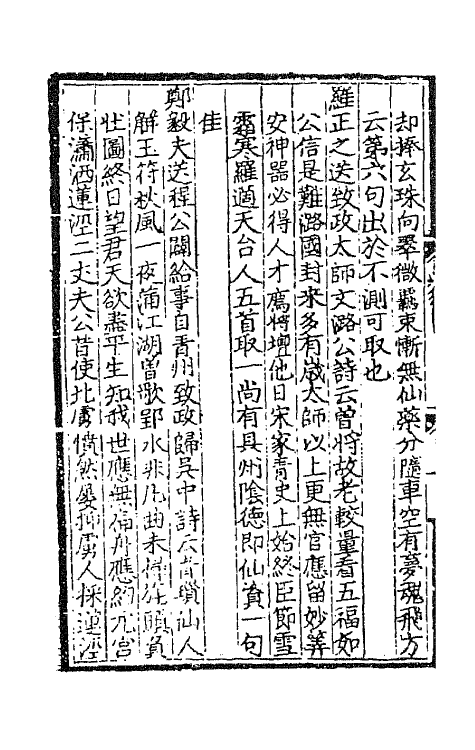 却捧玄珠向翠微羈束慚無仙藥分隨車空有夢魂飛方
云第六句出於不測可取也
羅正之送致政太師文潞公詩云曾將故老較量看五福如
公信是難路國封來多有歲太師以上更無官應留妙筭
安神器必得人才薦將壇他日宋家青史上始終臣節雪
霜寒羅適天台人五首取一尚有具州陰德即仙負一句
佳
鄭毅夫送程公闢給事自青州致政歸吳中詩云青瑣仙人
解玉符秋風一夜滿江湖曽歌郢水非凡曲未
壯圖終日望君天欲盡平生知我世應無
保瀟洒蓮涇二丈夫公昔使北虜僨然屢抑虜人採蓮涇